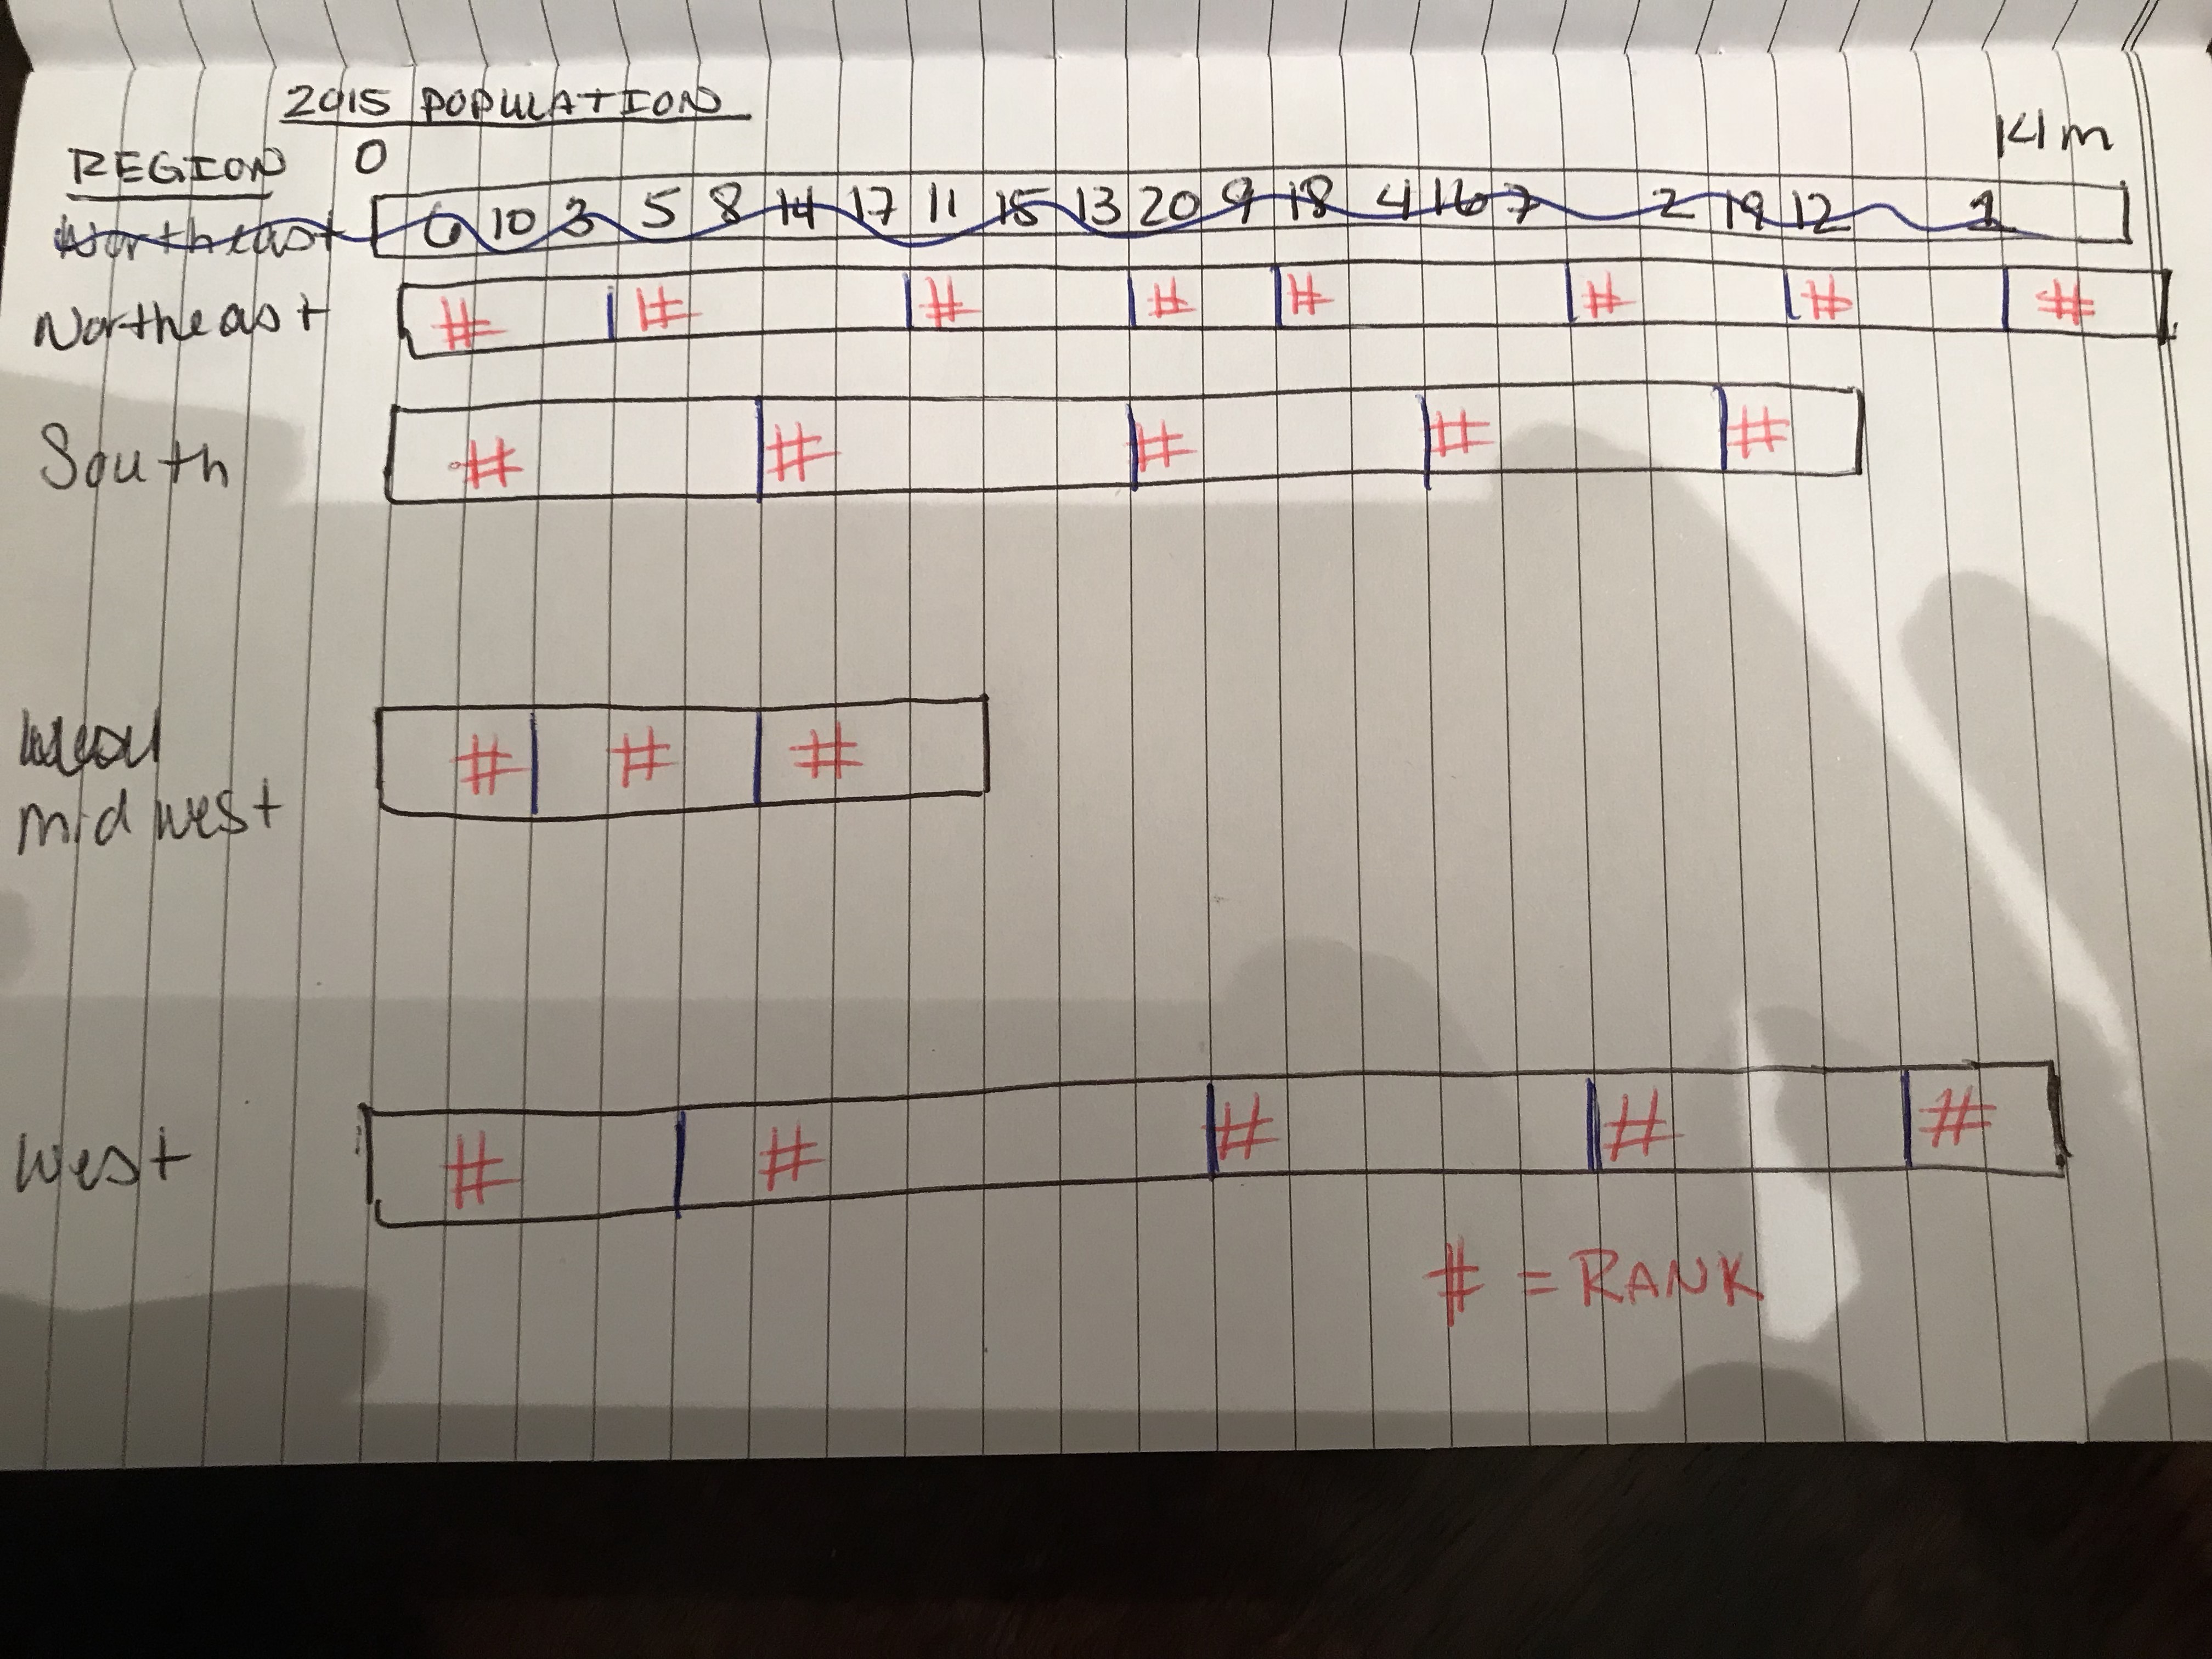 2015 POPULATION
REGION 0 141 m
Northeast 6 10 3 5 8 14 17 11 15 13 20 9 18 4 16 7 2 19 12 1
Northeast # # # # # # # #
South # # # # #
# # #
midwest
West # # # # #
# = RANK